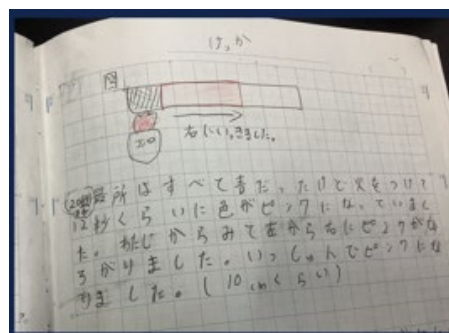 けっか
図
右にいきました。
最所はすべて青だったけど火をつけて
12秒くらいに色がピンクになっていまし
た。わたしからみて左から右にピンクが
ひろがりました。いっしゅんでピンクにな
りました。(10cmくらい)